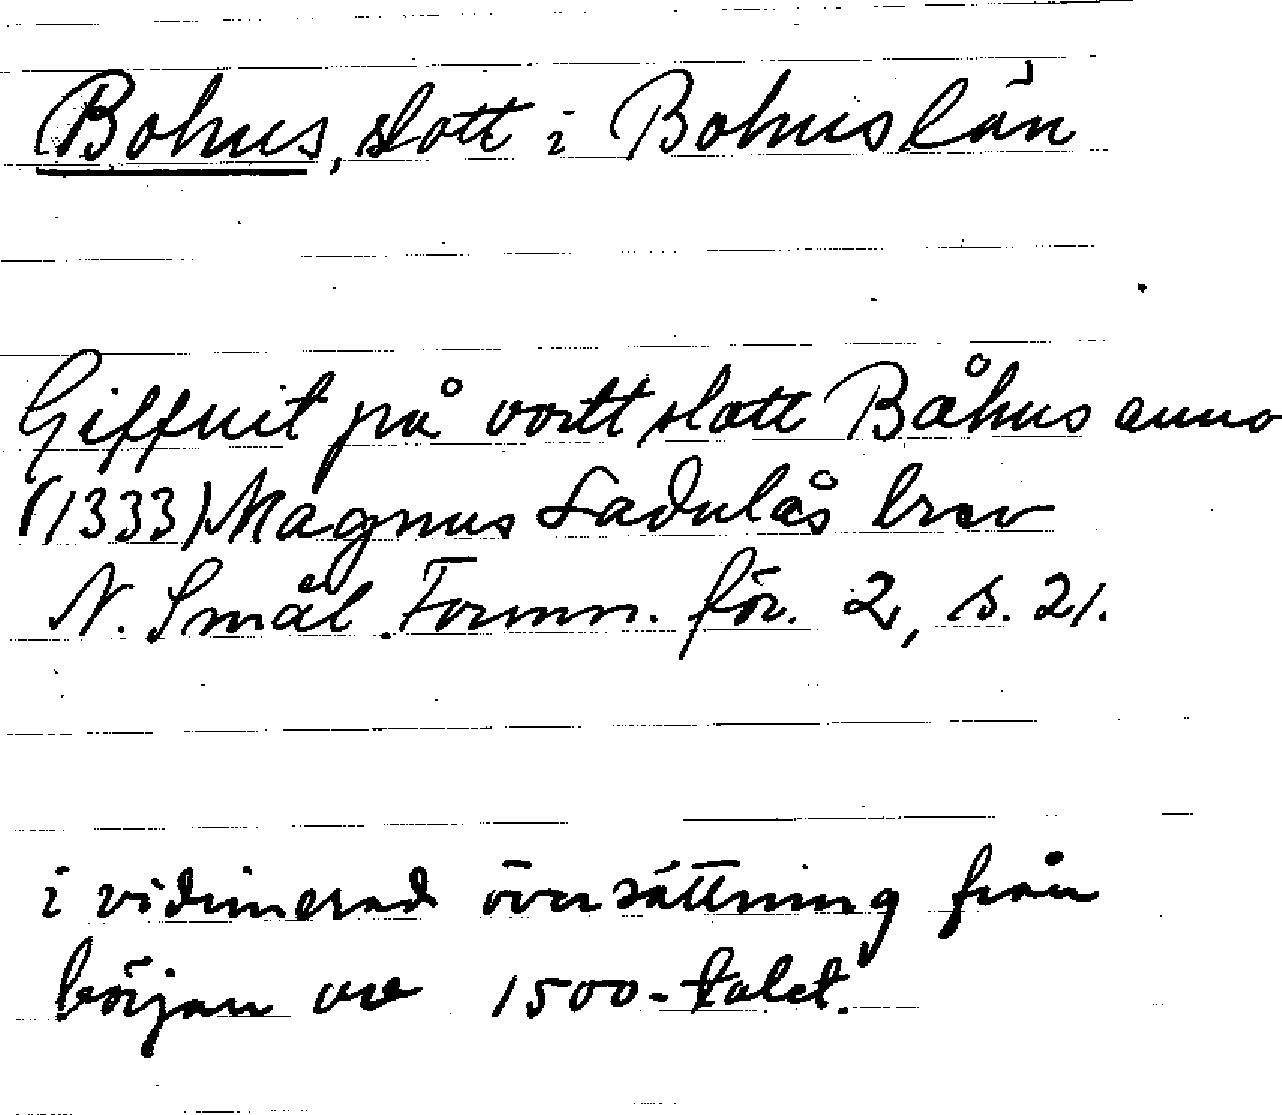 Bohus, slott i Bohuslän
Giffuit på vortt slott Båhus anno
(1333) Magnus Ladulås brev
N. Smål. Fornm. för. 2, s. 21.
i vidimerad översättning från
början av 1500-talet.